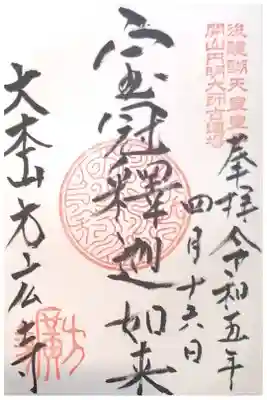 後醍醐天皇皇
開山円明大師古道場
奉拝 令和五年
四月十六日
宝冠釋迦如来
大本山方広寺